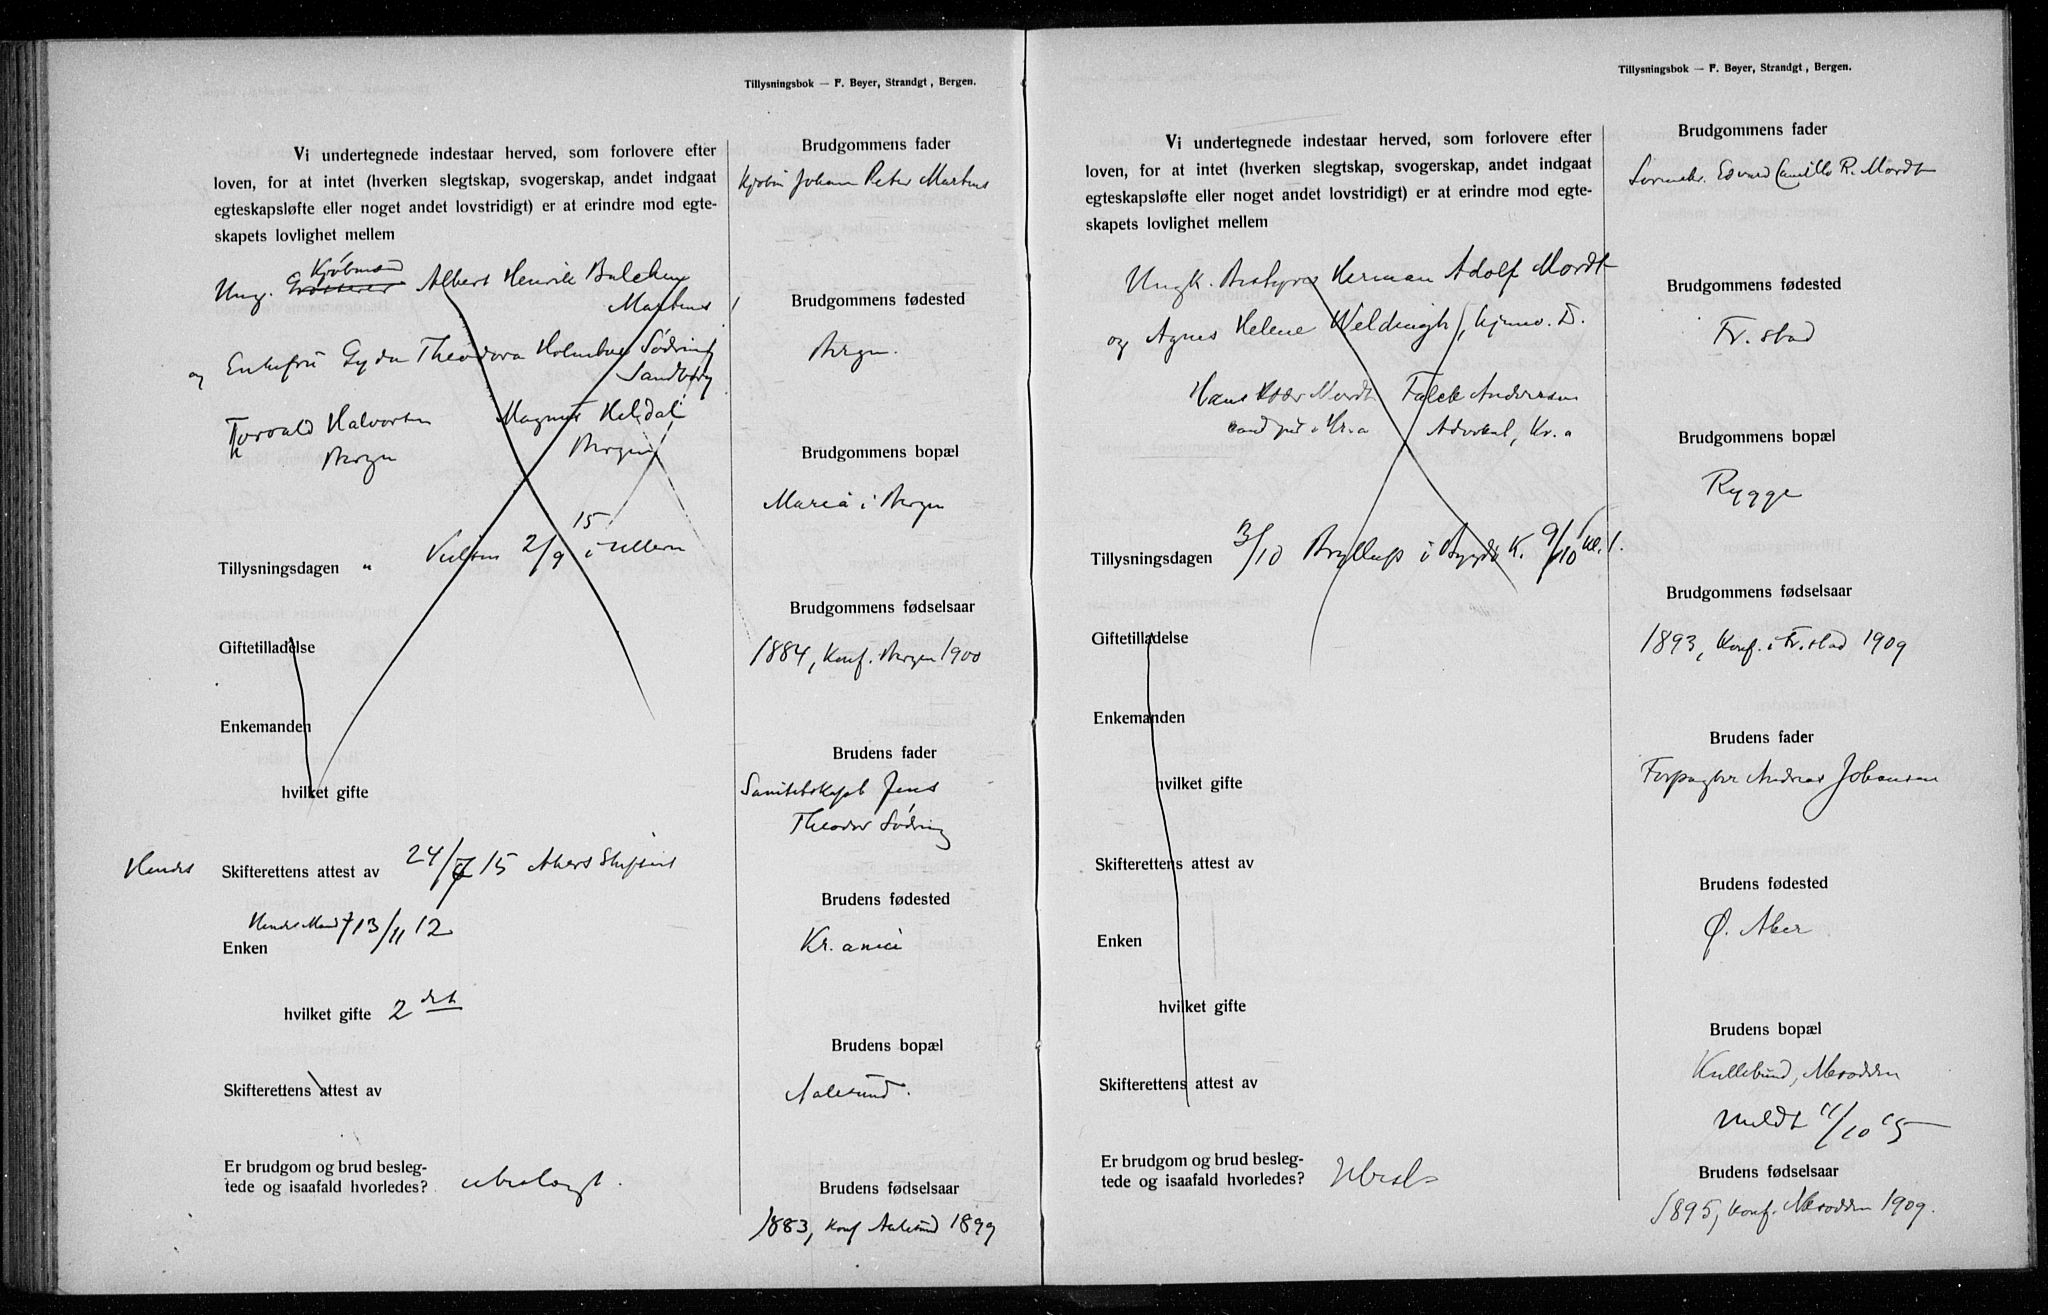 Tillysningsbok — F. Beyer, Strandgt, Bergen.
Vi undertegnede indestaar herved, som forlovere efter
loven, for at intet (hverken slegtskap, svogerskap, andet indgaat
egteskapsløfte eller noget andet lovstridigt) er at erindre mod egte-
skapets lovlighet mellem
Kjøbmand
Ung. Grosserer Albert Henrik Balchen
Martens
og Enkefru Gyda Theodora Holmboe Södring
Sandborg
Torvald Halvorsen Magnus Heldal
Bergen Bergen
Tillysningsdagen " Vielsen 2/9 15 i Ullern
Giftetilladelse
Enkemanden
hvilket gifte
Hendes Skifterettens attest av 24/7 15 Akers Skifteret
Hendes Mand † 13/11 12
Enken
hvilket gifte 2det
Skifterettens attest av
Er brudgom og brud besleg-
tede og isaafald hvorledes? ubeslægt.
Brudgommens fader
Kjøbm Johan Peter Martens
Brudgommens fødested
Bergen.
Brudgommens bopæl
Maria i Bergen
Brudgommens fødselsaar
1884, Konf. Bergen 1900
Brudens fader
Sanitetskapt Jens
Theodor Södring
Brudens fødested
Kr.ania
Brudens bopæl
Aalesund.
Brudens fødselsaar
1883, Konf Aalesund 1899
Tillysningsbok — F. Beyer, Strandgt, Bergen.
Vi undertegnede indestaar herved, som forlovere efter
loven, for at intet (hverken slegtskap, svogerskap, andet indgaat
egteskapsløfte eller noget andet lovstridigt) er at erindre mod egte-
skapets lovlighet mellem
Ungk. Bestyrer Herman Adolf Mordt
og Agnes Helene Weldingh, hjemv. D.
Hans Mordt Falck Andersen
Kr.a Advokat, Kr.a
Tillysningsdagen 3/10 Bryllup i Bygdø K. 9/10 kl. 1.
Giftetilladelse
Enkemanden
hvilket gifte
Skifterettens attest av
Enken
hvilket gifte
Skifterettens attest av
Er brudgom og brud besleg-
tede og isaafald hvorledes? Ubesl.
Brudgommens fader
Edvard Camillo R. Mordt
Brudgommens fødested
Fr.stad
Brudgommens bopæl
Rygge
Brudgommens fødselsaar
1893, Konf. i Fr.stad 1909
Brudens fader
Forpagter Andreas Johansen
Brudens fødested
Ø. Aker
Brudens bopæl
Kullebund, Nesodden
Meldt 11/10 15
Brudens fødselsaar
1895, Konf. Nesodden 1909.